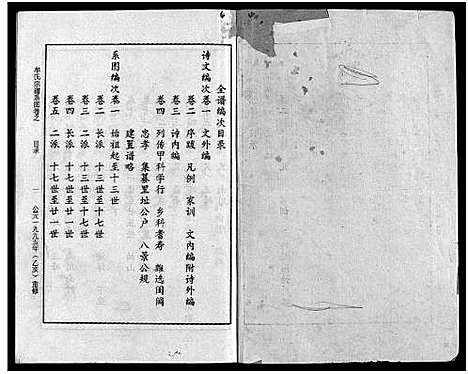 全谱编次目录
诗文编次卷一 文外编
卷二 序跋 凡例 家训 文内编附诗外编
卷三 诗内编
卷四 列传甲科学行 乡科耆寿 难选闺阃
忠孝 集墓里址公户 八景公规
建置谱略
系图编次卷一 始祖起至十三世
卷二 长派 十三世至十七世
卷三 二派 十三世至十七世
卷四 长派 十七世至廿一世
卷五 二派 十七世至廿一世
牟氏宗谱系图卷之 目录 一 公元一九九五年(乙亥)重修